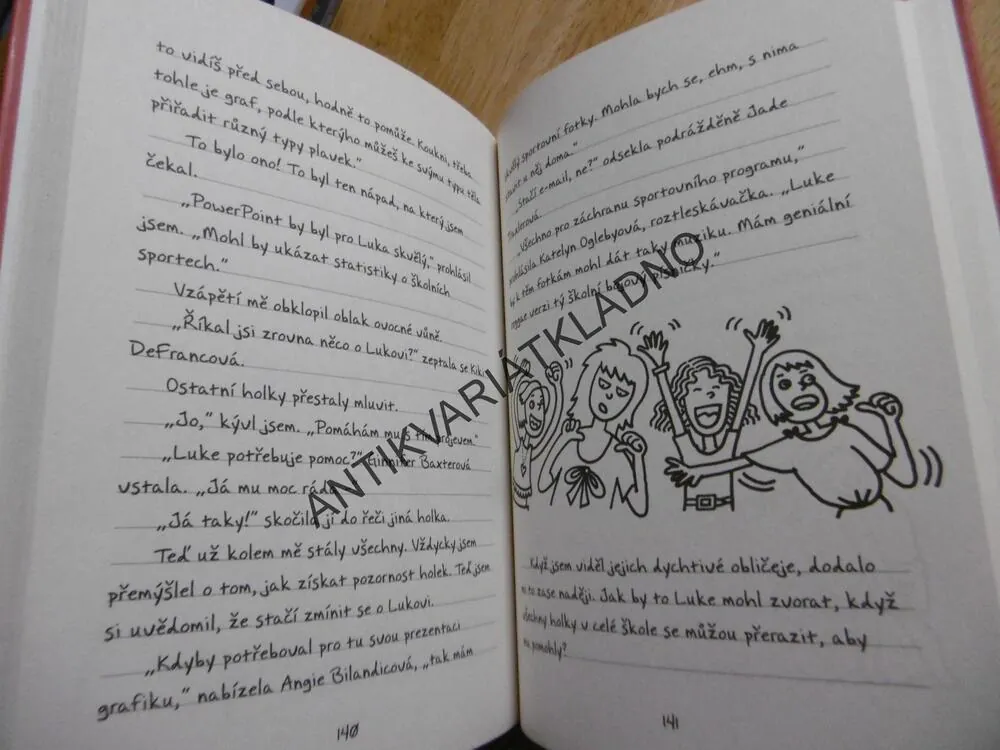 to vidíš před sebou, hodně to pomůže. Koukni, třeba
tohle je graf, podle kterýho můžeš ke svýmu typu těla
přiřadit různý typy plavek."
To bylo ono! To byl ten nápad, na který jsem
čekal.
„PowerPoint by byl pro Luka skvělý," prohlásil
jsem. „Mohl by ukázat statistiky o školních
sportech."
Vzápětí mě obklopil oblak ovocné vůně.
„Říkal jsi zrovna něco o Lukovi?" zeptala se Kiki
DeFrancová.
Ostatní holky přestaly mluvit.
„Jo," kývl jsem. „Pomáhám mu s tím projevem."
„Luke potřebuje pomoc?" Ginnifer Baxterová
vstala. „Já mu moc ráda
„Já taky!" skočila jí do řeči jiná holka.
Teď už kolem mě stály všechny. Vždycky jsem
přemýšlel o tom, jak získat pozornost holek. Teď jsem
si uvědomil, že stačí zmínit se o Lukovi.
„Kdyby potřeboval pro tu svou prezentaci
grafiku," nabízela Angie Bilandicová, „tak mám
140
sportovní fotky. Mohla bych se, ehm, s nima
u něj doma."
„Stačí e-mail, ne?" odsekla podrážděně Jade
„Všechno pro záchranu sportovního programu,"
prohlásila Katelyn Oglebyová, roztleskávačka. „Luke
by k těm fotkám mohl dát taky muziku. Mám geniální
reggae verzi tý školní bojový písničky."
Když jsem viděl jejich dychtivé obličeje, dodalo
mi to zase naději. Jak by to Luke mohl zvorat, když
všechny holky v celé škole se můžou přerazit, aby
mu pomohly?
141
ANTIKVARIÁTKLADNO